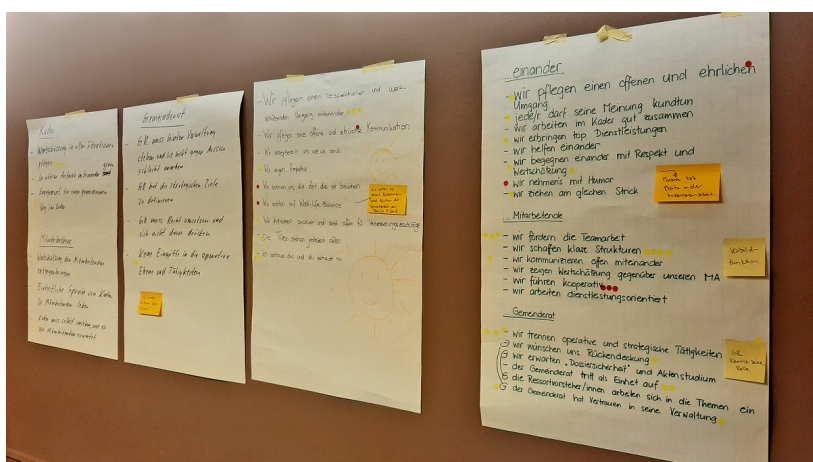 Kader
- Wertschätzung in allen Situationen
pflegen
Weg im Kader
Mitarbeitende
- Wertschätzung den Mitarbeitenden
entgegenbringen
- Einheitliche Sprache vom Kader
zu Mitarbeitenden leben
- Kader muss selbst machen, was es
von Mitarbeitenden erwartet
Gemeinderat
- GR muss hinter Verwaltung
stehen und sie nicht gegen Aussen
schlecht machen
- GR hat die strategischen Ziele
zu definieren
- GR muss Recht umsetzen und
sich nicht davon drücken
- Keine Eingriffe in die operativen
Ebenen und Tätigkeiten
- Wir pflegen einen respektvollen und wert-
schätzenden Umgang miteinander
- Wir pflegen eine offene und ehrliche Kommunikation
- Wir akzeptieren wie wir sind
- Wir zeigen Empathie
- Wir nehmen uns die Zeit die wir brauchen
- Wir achten auf Work-Life-Balance
- Die Türen stehen jederzeit offen
- Ich vertraue dir und du vertraust mir
...einander
- Wir pflegen einen offenen und ehrlichen
Umgang
- jede/r darf seine Meinung kundtun
- wir arbeiten im Kader gut zusammen
- wir erbringen top Dienstleistungen
- wir helfen einander
- wir begegnen einander mit Respekt und
Wertschätzung
- wir nehmens mit Humor
- wir ziehen am glechen Strick
Humor hat
Platz in der
Zusammenarbeit
... Mitarbeitende
- wir fördern die Teamarbeit
- wir schaffen klare Strukturen
- wir kommunizieren offen mitenander
- wir zeigen Wertschätzung gegenüber unseren MA
- wir führen kooperativ
- wir arbeiten dienstleistungsorientiert
Vorbild-
funktion
... Gemeinderat
- wir trennen operative und strategische Tätigkeiten
- wir wünschen uns Rückendeckung
- wir erwarten "Dossiersicherheit" und Aktenstudium
- der Gemeinderat tritt als Einheit auf
- die Ressortvorsteher/innen arbeiten sich in die Themen ein
- der Gemeinderat hat Vertrauen in seine Verwaltung
GR
kennt seine
Rolle